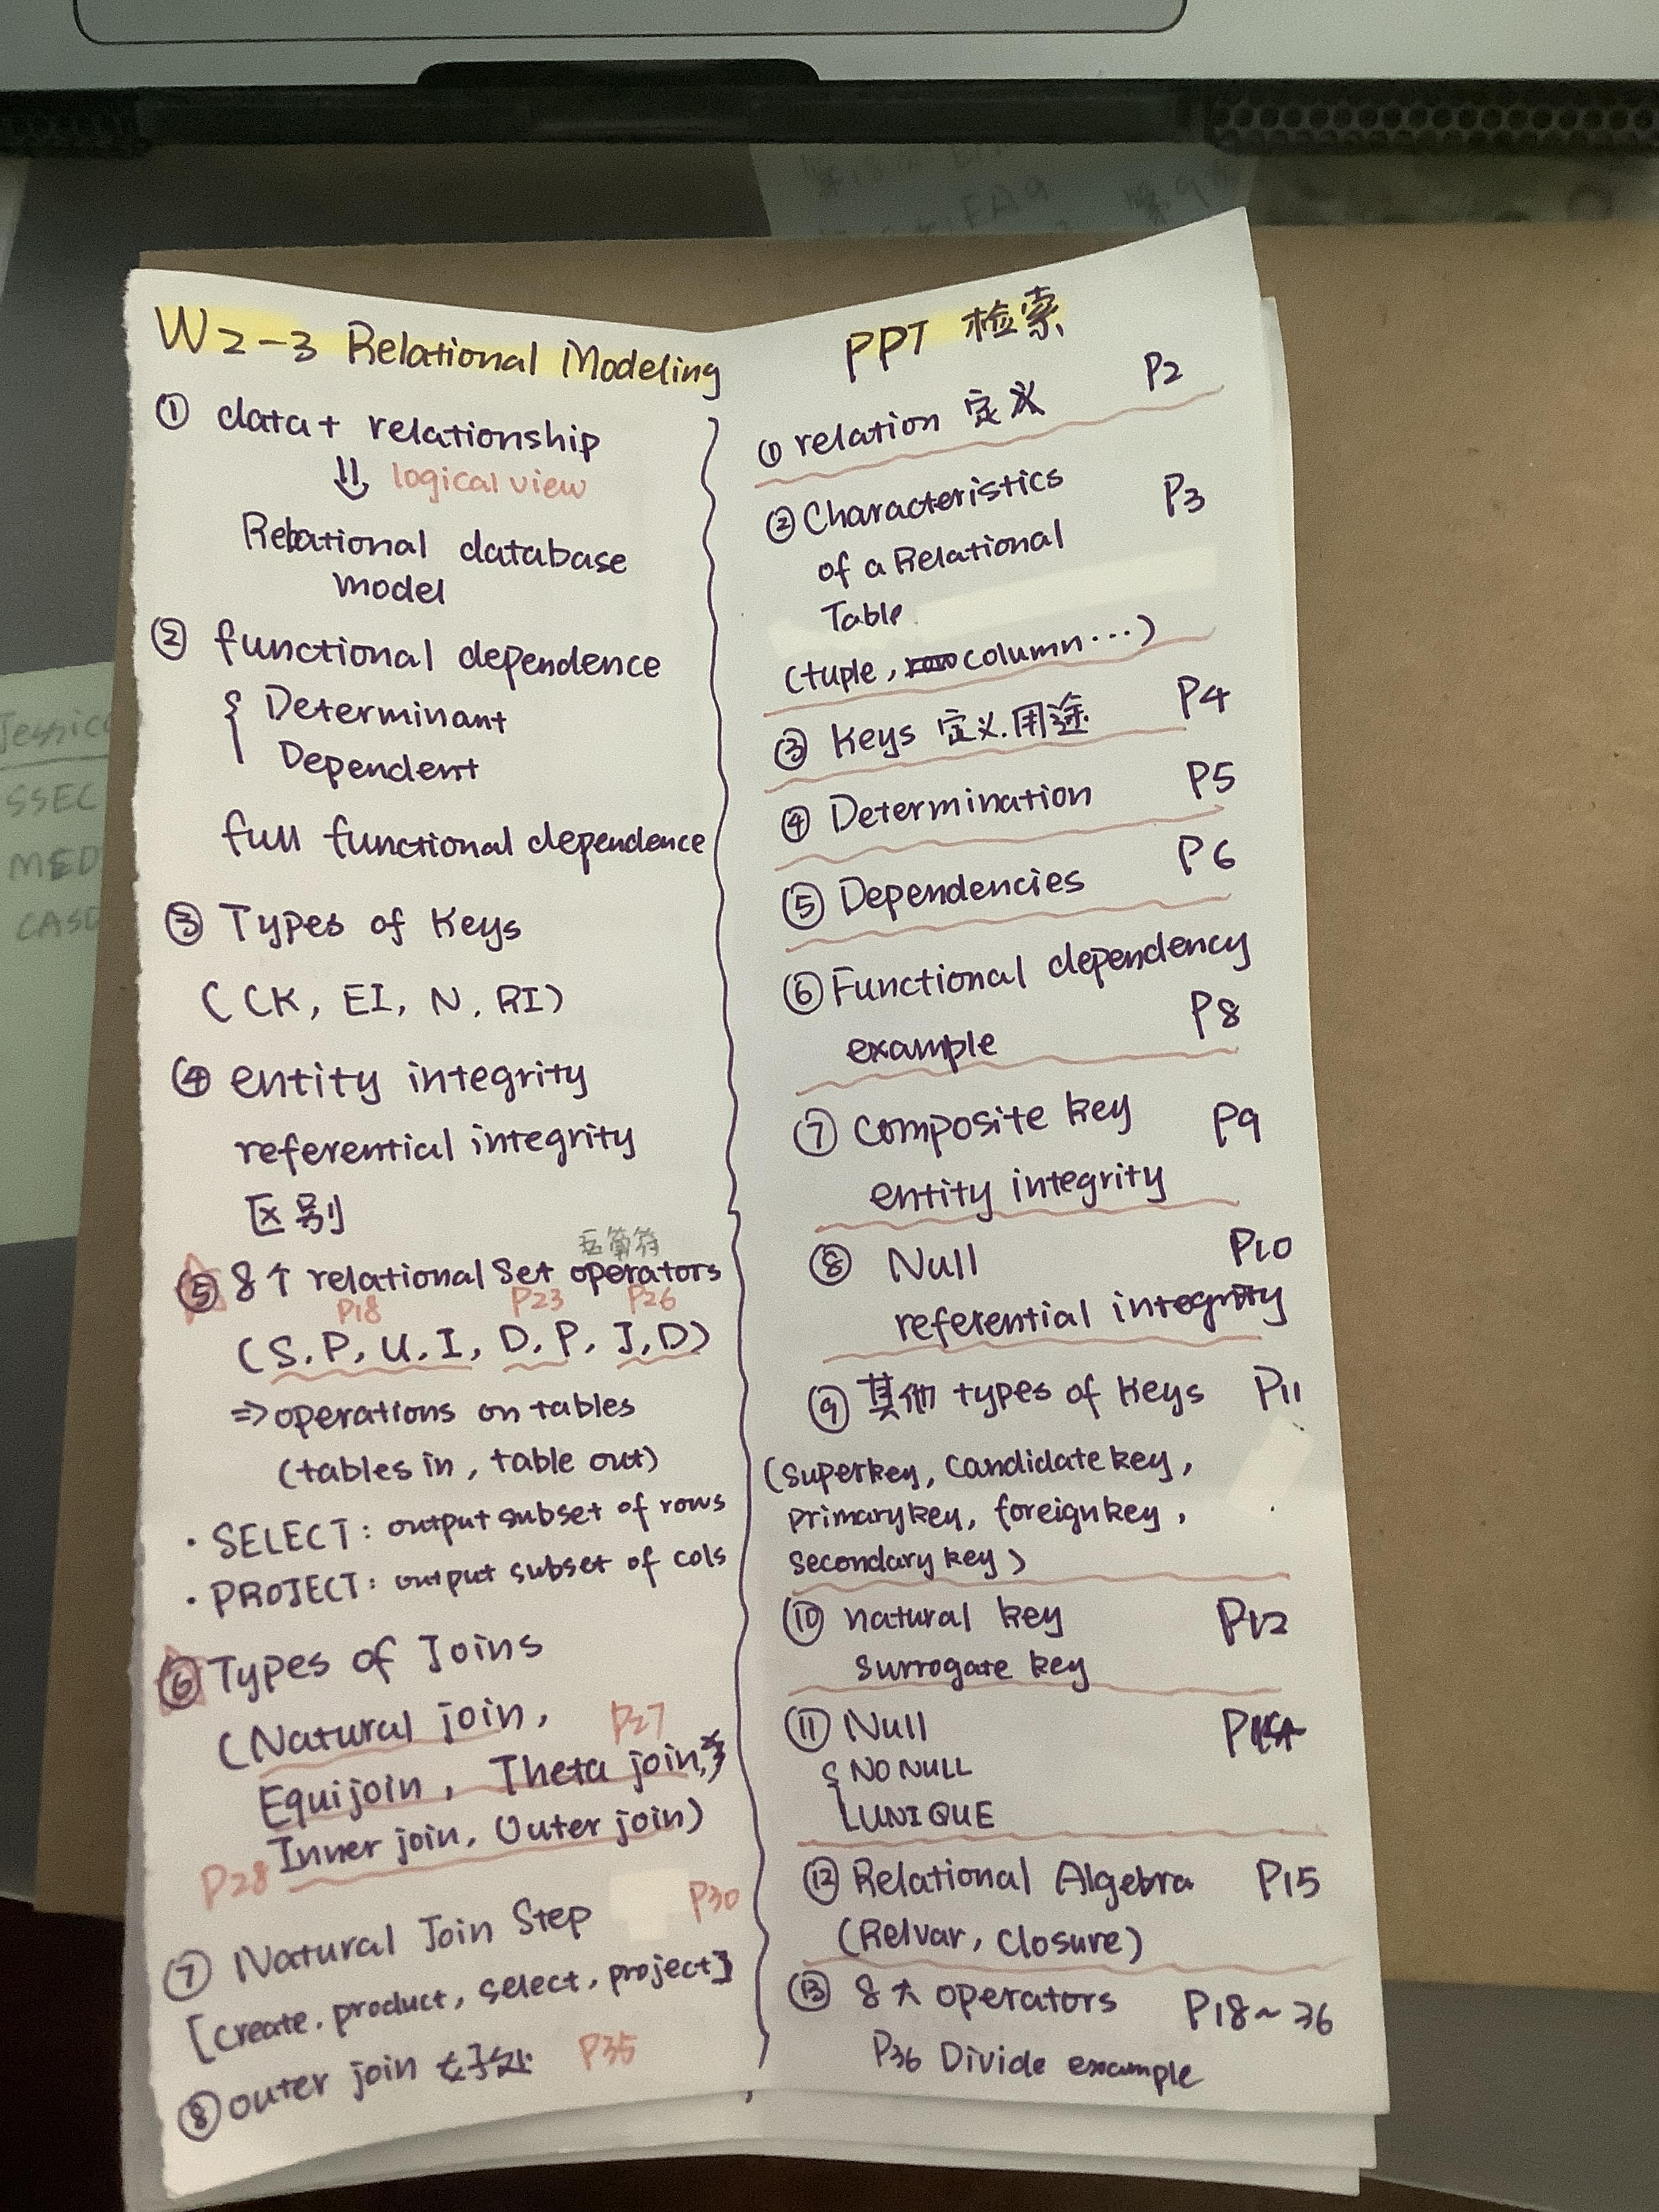 W2-3 Relational Modeling
① data + relationship
⇓ logical view
Relational database
model
② functional dependence
{ Determinant
Dependent
full functional dependence
③ Types of Keys
(CK, EI, N, RI)
④ entity integrity
referential integrity
区别
运算符
⑤ 8个 relational Set operators
P18 P23 P26
(S, P, U, I, D, P, J, D)
⇒ operations on tables
(tables in, table out)
· SELECT: output subset of rows
· PROJECT: output subset of cols
⑥ Types of Joins
(Natural join, P27
Equijoin, Theta join,
Inner join, Outer join)
P28
⑦ Natural Join Step P30
[create, product, select, project]
⑧ outer join 好处 P35
PPT 检索
① relation 定义 P2
② Characteristics P3
of a Relational
Table
(tuple, column ...)
③ Keys 定义.用途 P4
④ Determination P5
⑤ Dependencies P6
⑥ Functional dependency
example P8
⑦ Composite key P9
entity integrity
⑧ Null P10
referential integrity
⑨ 其他 types of keys P11
(superkey, candidate key,
primary key, foreign key,
secondary key)
⑩ natural key P12
surrogate key
⑪ Null
{ NO NULL
UNIQUE
⑫ Relational Algebra P15
(Relvar, Closure)
⑬ 8大 operators P18~36
P36 Divide example
Jessic
SSEC
MED
CASD